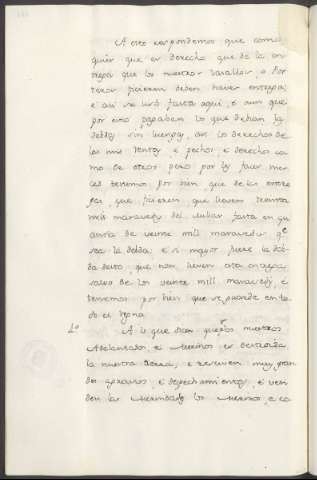 A esto respondemos que como
quier que es derecho que de la en
tregas que los nuestros vasallos, o Por
teros ficieren deben haver entregas;
e asi se usó fasta aqui, e aun que
por esto pagaban los que debian la
debda sin luengo, assi los derechos de
las mis rentas e pechos, e derechos co
mo de otros pero por les facer mer
ced tenemos por bien que de las entre
gas, que ficieren, que lieven treinta
mill maravedis del millar fasta en qu
antia de veinte mill maravedis qe
sea la debda. E si mayor fuere la deb
da desto, que non lieven otra entrega
salvo de los veinte mill maravedis, e
tenemos por bien que se guarde en to
do el regno.
A lo que dicen que los nuestros
Adelantados, e Merinos es destroida
la nuestra tierra, e reciven muy gran
des agravios e despechamientos, e ven
den las Merindades los Merinos, e ca